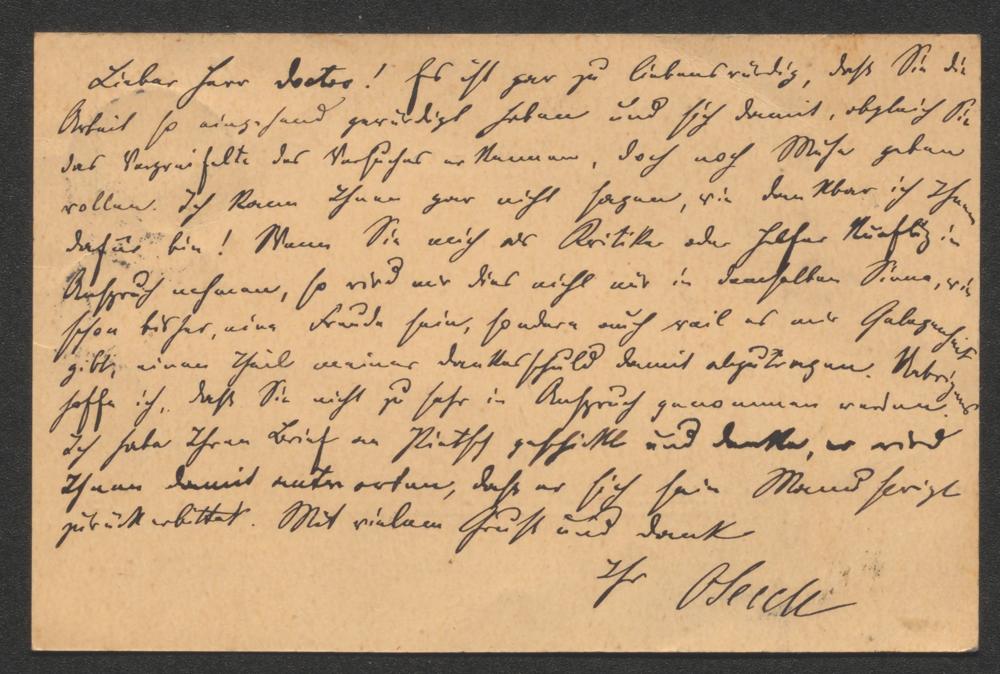 Lieber Herr Doctor! Es ist gar zu liebenswürdig, daß Sie die
Arbeit so eingehend gewürdigt haben und sich damit, obgleich Sie
das Verzweifelte des Versuches erkennen, doch noch Mühe geben
wollen. Ich kann Ihnen gar nicht sagen, wie dankbar ich Ihnen
dafür bin! Wenn Sie mich als Kritiker oder Helfer künftig in
Anspruch nehmen, so wird mir dies nicht nur in demselben Sinne, wie
schon bisher, eine Freude sein, sondern auch weil es mir Gelegenheit
gibt, einen Theil meiner Dankesschuld damit abzutragen. Uebrigens
hoffe ich, daß Sie nicht zu sehr in Anspruch genommen werden.
Ich habe Ihren Brief an geschickt und denke, er wird
Ihnen damit antworten, daß er sich sein Manuscript
zurückerbittet. Mit vielem Gruß und Dank
Ihr